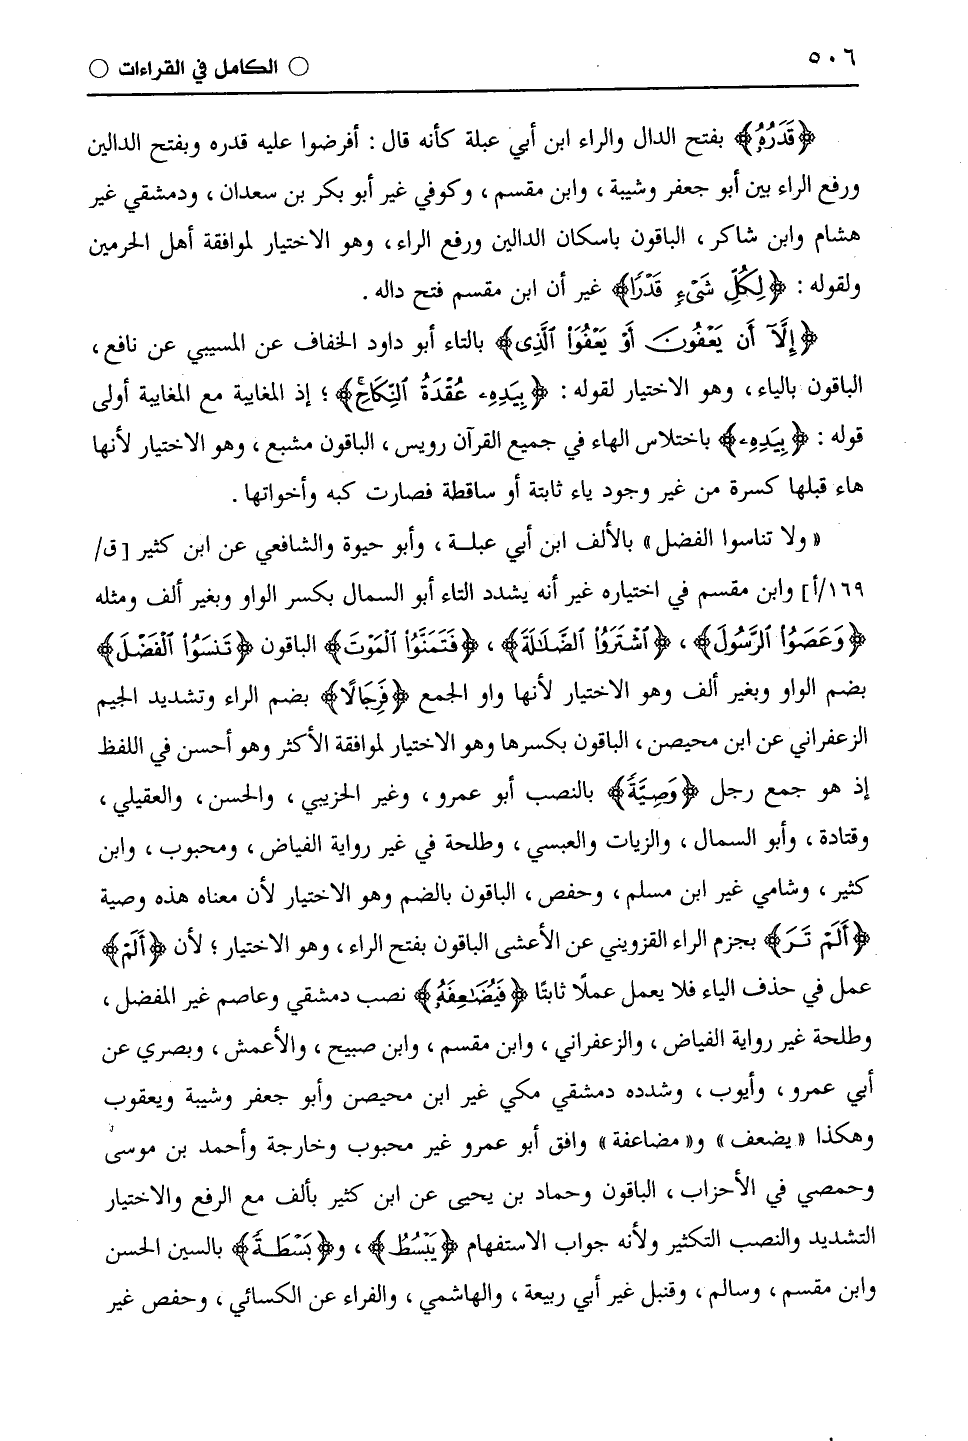 ٥٠٦
○ الكامل في القراءات ○
﴿قَدَرُهُ﴾ بفتح الدال والراء ابن أبي عبلة كأنه قال : أفرضوا عليه قدره وبفتح الدالين
ورفع الراء بين أبو جعفر وشيبة ، وابن مقسم ، وكوفي غير أبو بكر بن سعدان ، ودمشقي غير
هشام وابن شاكر ، الباقون باسكان الدالين ورفع الراء ، وهو الاختيار لموافقة أهل الحرمين
ولقوله : ﴿لِكُلِّ شَىْءٍ قَدْرًا﴾ غير أن ابن مقسم فتح داله .
﴿إِلَّآ أَن يَعْفُونَ أَوْ يَعْفُوَا۟ ٱلَّذِى﴾ بالتاء أبو داود الخفاف عن المسيبي عن نافع ،
الباقون بالياء ، وهو الاختيار لقوله : ﴿بِيَدِهِۦ عُقْدَةُ ٱلنِّكَاحِ﴾ ؛ إذ المغايبة مع المغايبة أولى
قوله : ﴿بِيَدِهِۦ﴾ باختلاس الهاء في جميع القرآن رويس ، الباقون مشبع ، وهو الاختيار لأنها
هاء قبلها كسرة من غير وجود ياء ثابتة أو ساقطة فصارت كبه وأخواتها .
« ولا تناسوا الفضل » بالألف ابن أبي عبلـة ، وأبو حيوة والشافعي عن ابن كثير [ق/
١٦٩/أ] وابن مقسم في اختياره غير أنه يشدد التاء أبو السمال بكسر الواو وبغير ألف ومثله
﴿وَعَصَوُا۟ ٱلرَّسُولَ﴾ ، ﴿ٱشْتَرَوُا۟ ٱلضَّلَٰلَةَ﴾ ، ﴿فَتَمَنَّوُا۟ ٱلْمَوْتَ﴾ الباقون ﴿تَنسَوُا۟ ٱلْفَضْلَ﴾
بضم الواو وبغير ألف وهو الاختيار لأنها واو الجمع ﴿فَرِجَالًا﴾ بضم الراء وتشديد الجيم
الزعفراني عن ابن محيصن ، الباقون بكسرها وهو الاختيار لموافقة الأكثر وهو أحسن في اللفظ
إذ هو جمع رجل ﴿وَصِيَّةً﴾ بالنصب أبو عمرو ، وغير الحزيبي ، والحسن ، والعقيلي ،
وقتادة ، وأبو السمال ، والزيات والعبسي ، وطلحة في غير رواية الفياض ، ومحبوب ، وابن
كثير ، وشامي غير ابن مسلم ، وحفص ، الباقون بالضم وهو الاختيار لأن معناه هذه وصية
﴿أَلَمْ تَرَ﴾ بجزم الراء القزويني عن الأعشى الباقون بفتح الراء ، وهو الاختيار ؛ لأن ﴿أَلَمْ﴾
عمل في حذف الياء فلا يعمل عملًا ثابتًا ﴿فَيُضَٰعِفَهُۥ﴾ نصب دمشقي وعاصم غير المفضل ،
وطلحة غير رواية الفياض ، والزعفراني ، وابن مقسم ، وابن صبيح ، والأعمش ، وبصري عن
أبي عمرو ، وأيوب ، وشدده دمشقي مكي غير ابن محيصن وأبو جعفر وشيبة ويعقوب
وهكذا « يضعف » و« مضاعفة » وافق أبو عمرو غير محبوب وخارجة وأحمد بن موسىٰ
وحمصي في الأحزاب ، الباقون وحماد بن يحيى عن ابن كثير بألف مع الرفع والاختيار
التشديد والنصب التكثير ولأنه جواب الاستفهام ﴿يَبْسُطُ﴾ ، و﴿بَسْطَةً﴾ بالسين الحسن
وابن مقسم ، وسالم ، وقنبل غير أبي ربيعة ، والهاشمي ، والفراء عن الكسائي ، وحفص غير